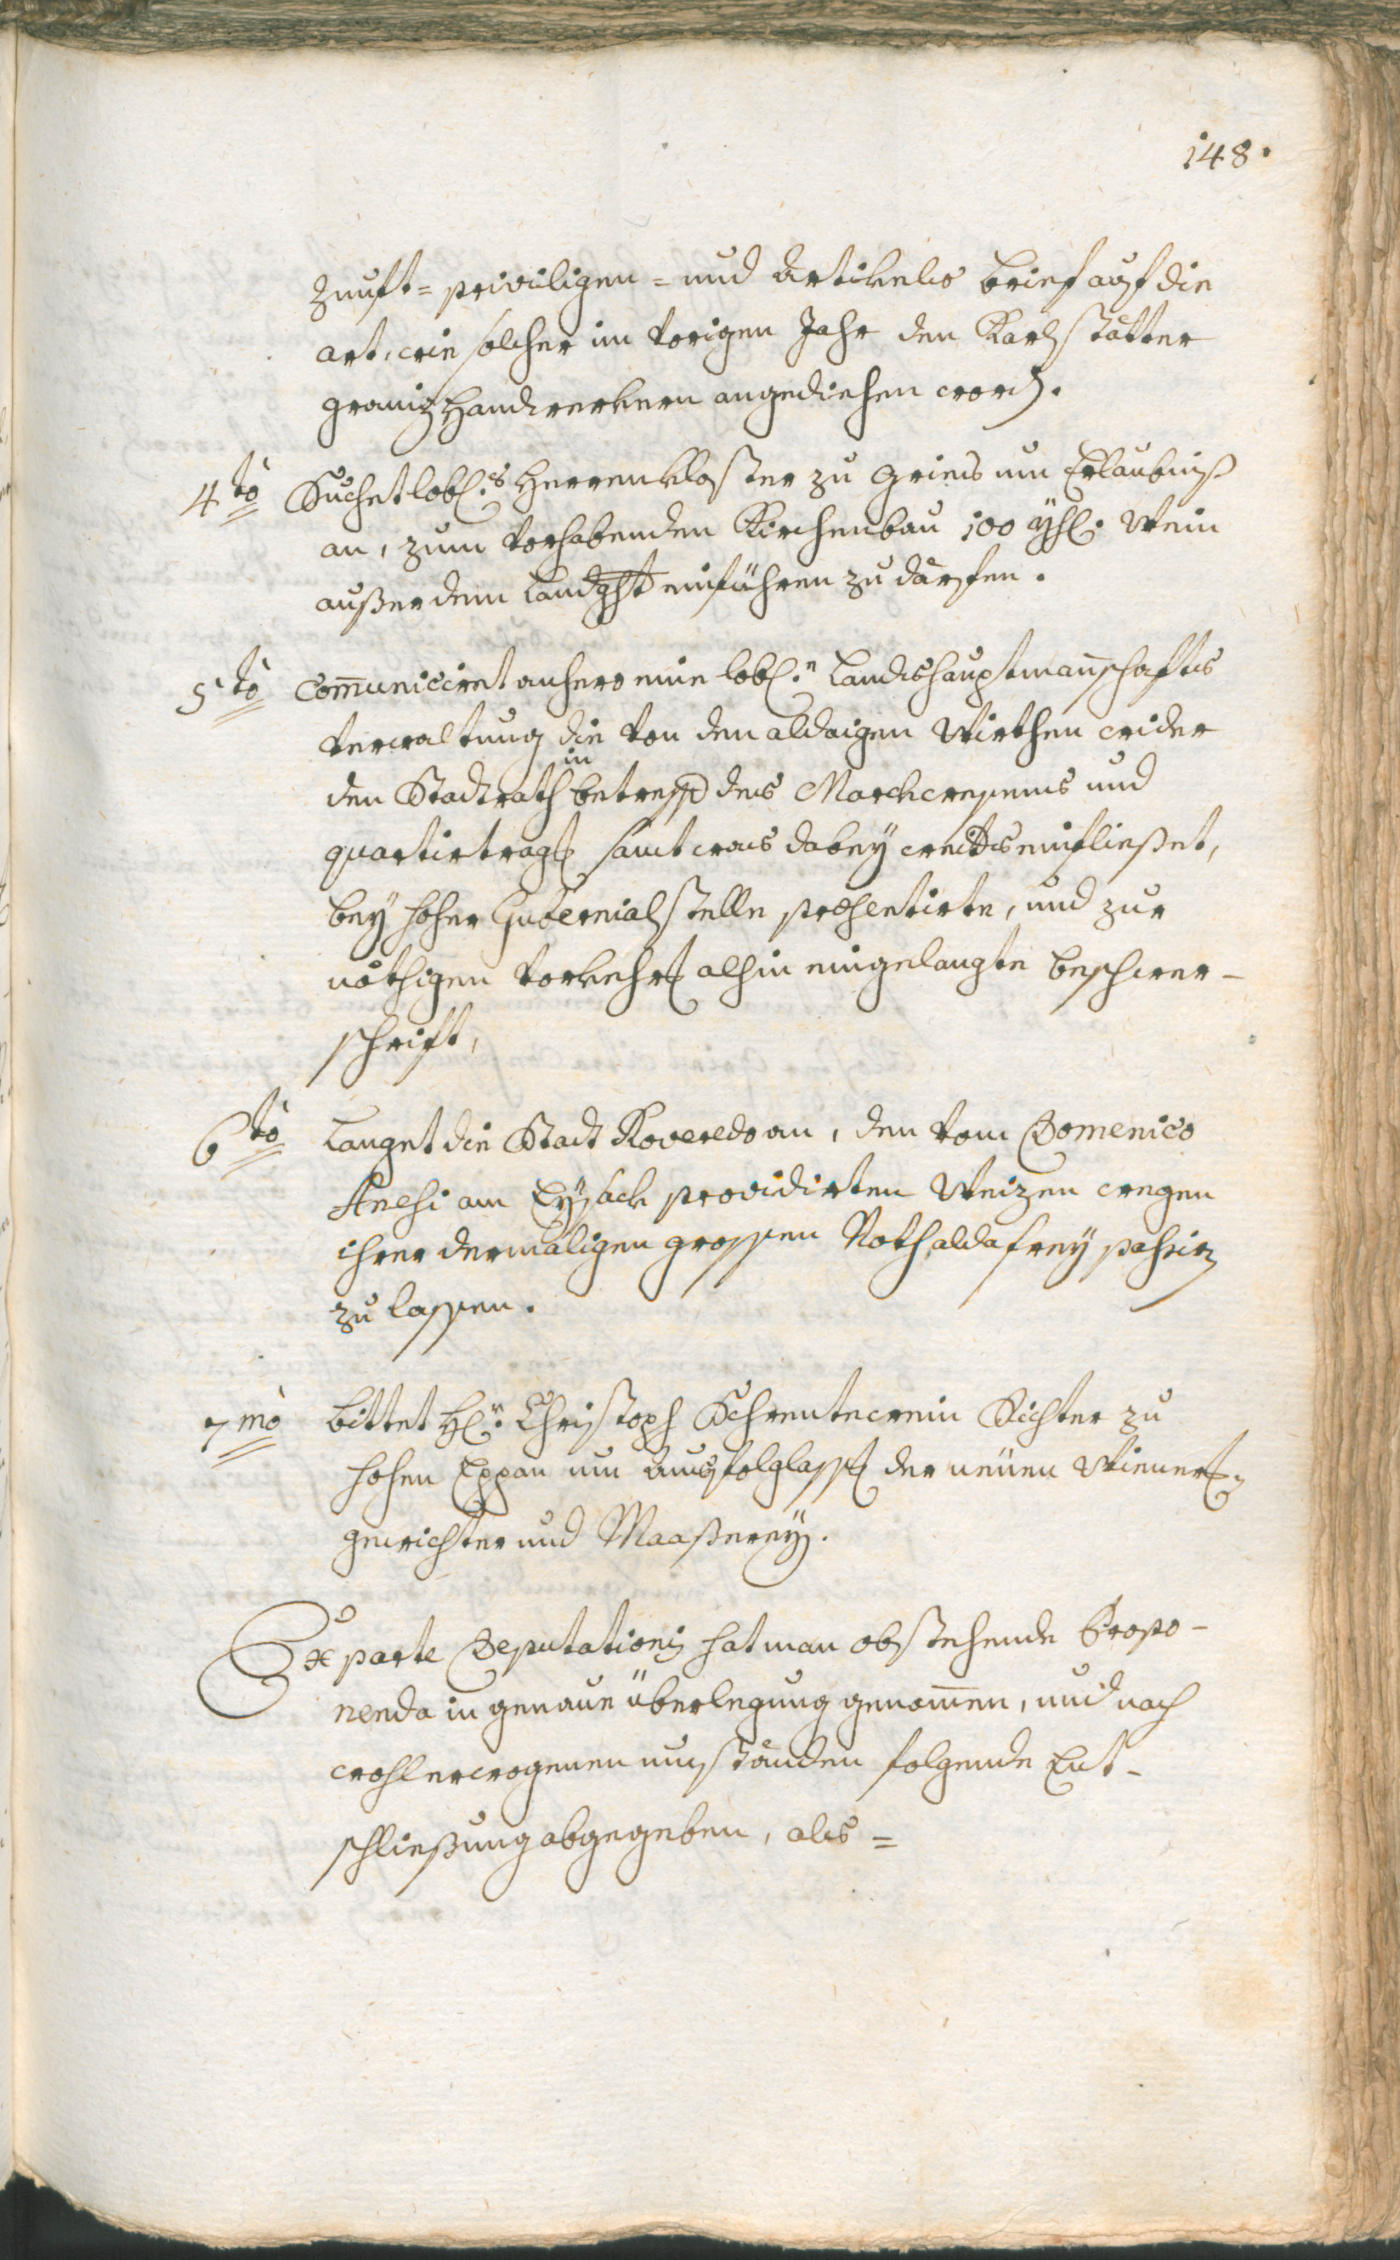 148.
Zunft= privilegien= und Articuls brief auf die
art, wie solcher im vorigen Jahr den Karlstätter
graniz Handwerkern angediehen word.
4to Suchet lobl:s Herrenkloster zu Gries um Erlaubniß
an, zum vorhabenden Kirchenbau 100 Yhl: Wein
außer dem Landght einführen zu därfen.
5to Com̄uniciret anhero eine lobl:e Landshauptmanschafts
verwaltung die von den aldaigen Wirthen wider
den Stadtrath in betreff des Marchwesens und
quartirtrag samt was dabey weiters einfließet,
bey hoher Gubernialstelle præsentirte, und zur
nöthigen vorkehr alhin eingelangte beschwer-
schrift,
6to Langet die Stadt Roveredo an, den vom Domenico
Anesi am Eysack providirten Weizen wegen
ihrer dermaligen grossen Noth alda frey passirn
zu lassen.
7mo bittet H: Christoph Schrentewein Richter zu
hohen Eppan um ausfolglass der neüen Wiener-
gewichter und Maaßerey.
Ex parte Deputationis hat man obstehende Propo-
nenda in genaue überlegung genom̄en, und nach
wohl erwogenen umständen folgende Ent-
schließung abgegeben, als=